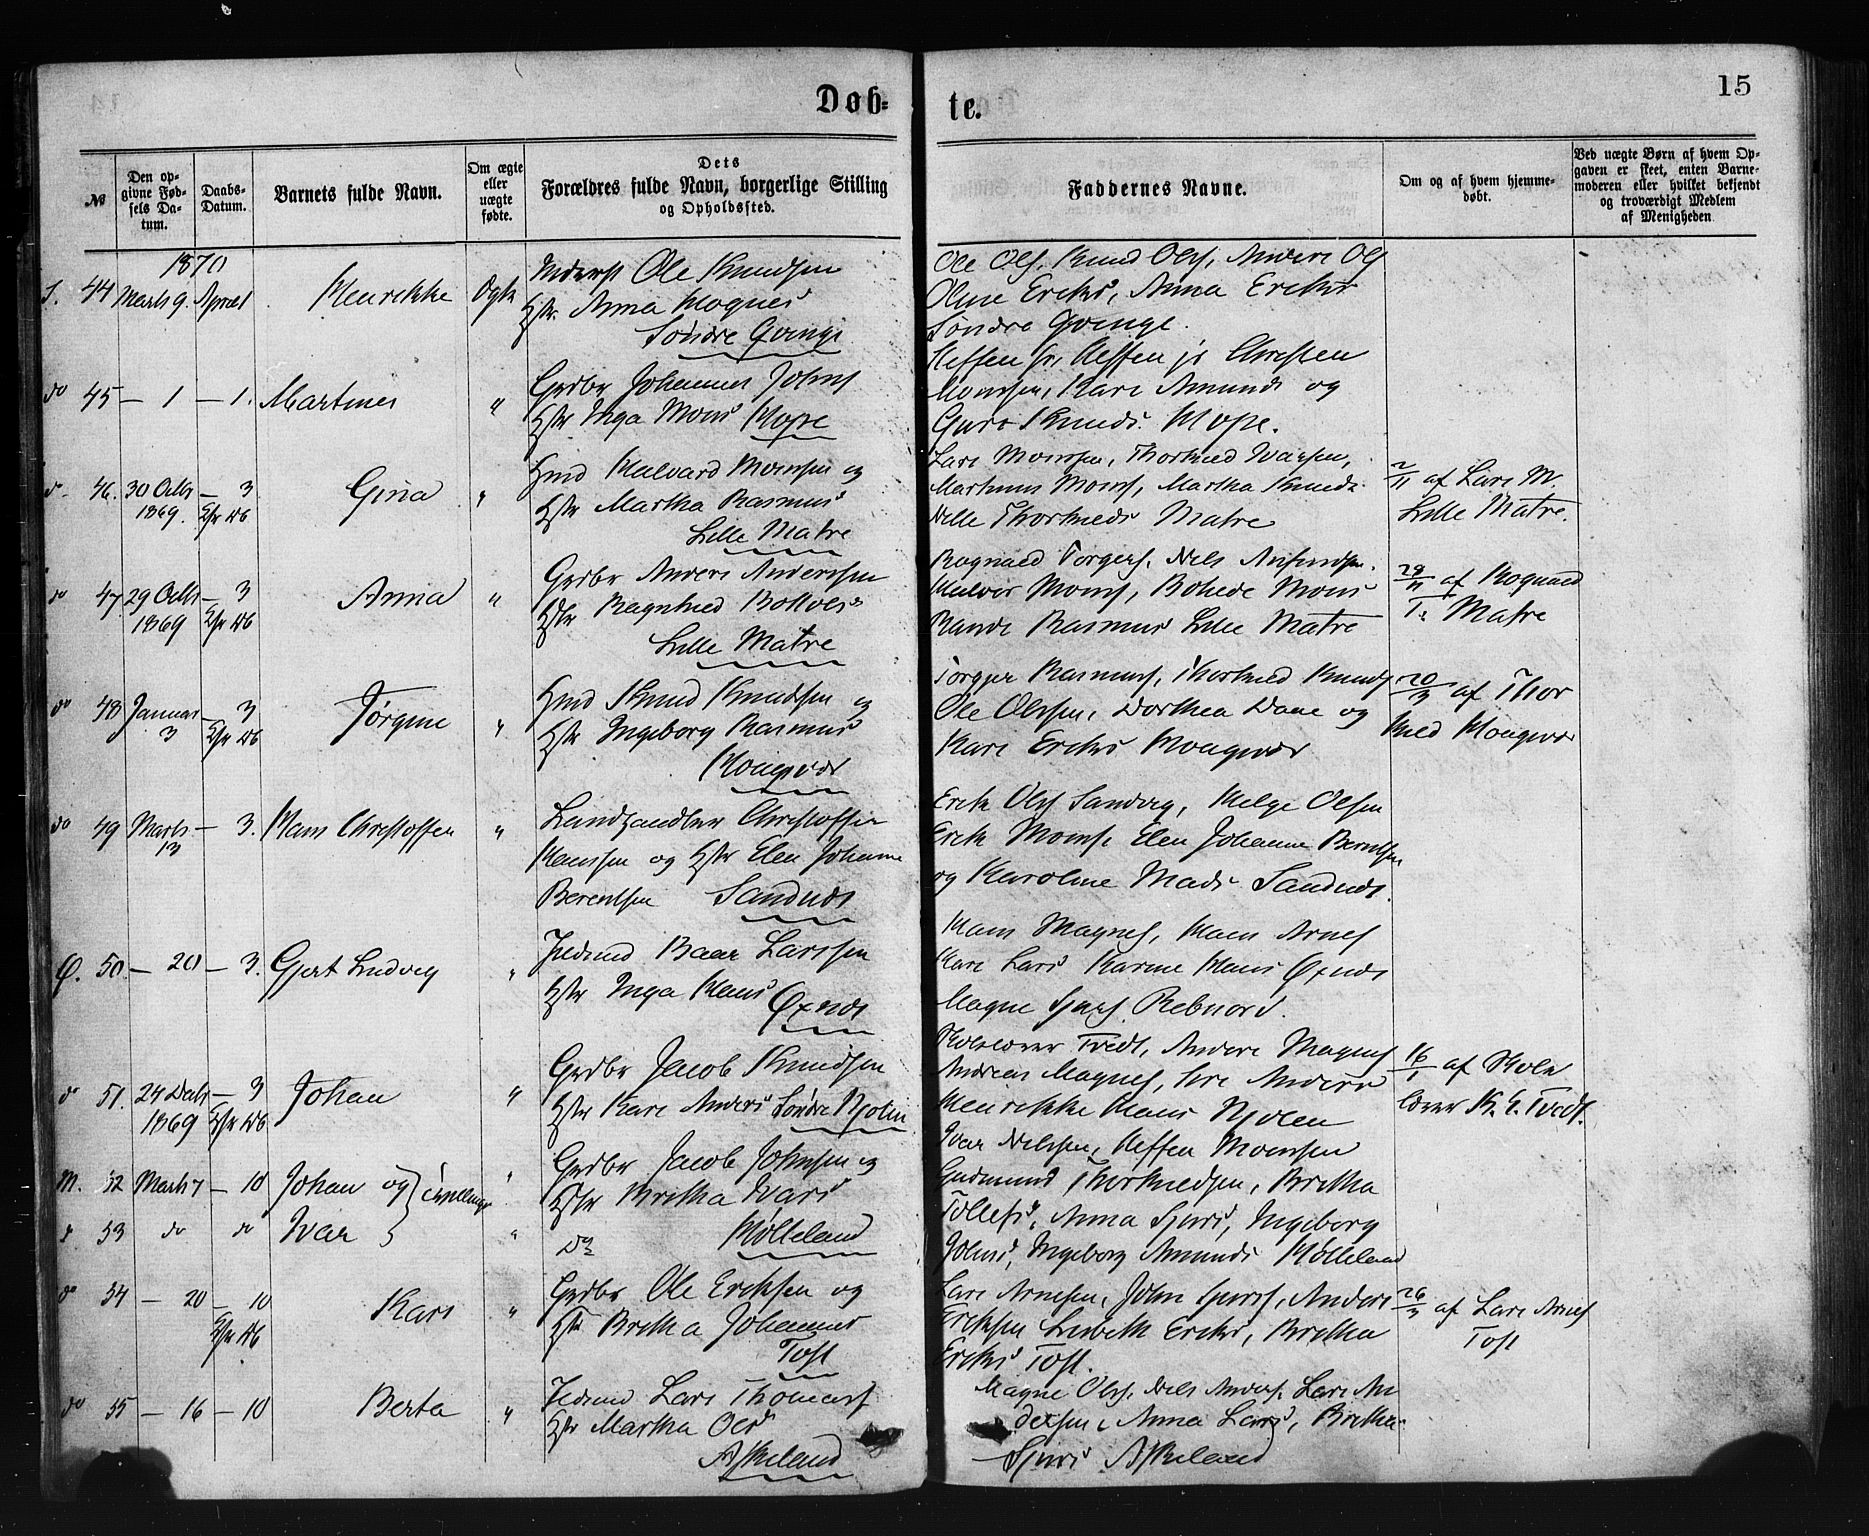 15
Døb-
te.
№
Den opgivne Fødsels Datum.
Daabs-Datum.
Barnets fulde Navn.
Om ægte eller uægte fødte.
Dets
Forældres fulde Navn, borgerlige Stilling
og Opholdssted.
Faddernes Navne.
Om og af hvem hjemmedøbt.
Ved uægte Børn af hvem Opgaven er skeet, enten Barnemoderen eller hvilket bekjendt og troværdigt Medlem af Menigheden
1870
S. 44 Marts 9. April Henrikke Ægte Inderst Ole Knudsen
Hstr. Anna Mognes
Søndre Qvinge
Ole Ols. Knud Ols, Anders Ols
Oline Eriks, Anna Eriks
Søndre Qvinge.
do 45 — 1 — 1. Martines " Grdbr Johannes Johns
Hstr Inga Mons Hope
Steffen sr, Steffen jr Christen
Monssen, Kari Amunds og
Guro Knuds Hope.
do 46. 30 Octbr 1869. — 3 Gina " Hmd Halvard Monsen og
Hstr Martha Rasmus
Lille Matre
Lars Monsen, Thorkild Ivarsen,
Martinus Mons, Martha Knuds
Nelle Thorkilds Matre
2/11 af Lars M.
Lille Matre.
do 47. 29 Octbr 1869 — 3 Anna " Grdbr Anders Anderssen
Hstr Ragnhild Bottolvs
Lille Matre
Rognald Torgers, Nels Amundsen
Halvor Mons, Bohede Mons
Rande Rasmus Lille Matre
28/11 af Rognald
T. Matre
do 48 Januar 3 — 3 Jørgine " Hmd Knud Knudsen og
Hstr Ingeborg Rasmus
Hougsvær
Torger Rasmus, Thorkild Knuds
Ole Olssen, Dorthea Daae og
Kari Eriks Hougsvær
20/3 af Thor
kild Hougsvær
do 49 Marts 13 — 3. Hans Christoffer " Landhandler Christoffer
Hanssen og Hstr Elen Johanne
Berentsen Sandnæs
Erik Ols Sandvig, Helge Olsen
Erik Mons. Elen Johanne Berntsen
og Karoline Mads Sandnæs.
Ø. 50. — 20 — 3. Gjert Ludvig " Fledmd Baar Larssen
Hstr Inga Hans
Øxnæs
Hans Magnes, Hans Arnes
Kari Lars Karine Hans Øxnæs
Magne Sjurs Rebnord.
do 51. 24 Debr 1869 — 3 Johan " Grdbr Jacob Knudsen
Hstr Kari Anders Søndre Njøten
Skolelærer Tvedt, Anders Magnes
Andreas Magnes, Siri Anders
Henrikke Hans Njøten
16/1 af Skole
lærer K. E. Tvedt.
M. 52 Marts 7 — 10 Johan og } tvillinger " Grdbr Jacob Johnsen og
Hstr Britha Ivars
do 53 do do Ivar } " do Mølleland
Ivar Nilssen, Steffen Monsen
Gudmund Thorkildsen, Britha
Tollefs, Anna Sjurs, Ingeborg
Johns, Ingeborg Amunds Mølleland
do 54 — 20 — 10 Kari " Grdbr Ole Eriksen og
Hstr Britha Johannes
Toft
Lars Arnesen, John Sjurs, Anders
Eriksen Lisbeth Eriks, Britha
Eriks Toft.
26/3 af Lars Arnes
Toft
do 55 — 16 — 10 Berta " Fledmd Lars Thomas
Hstr Martha Ols
Askeland
Magne Ols. Nils Anders. Lars An
dersen, Anna Lars, Britha
Sjurs Askeland